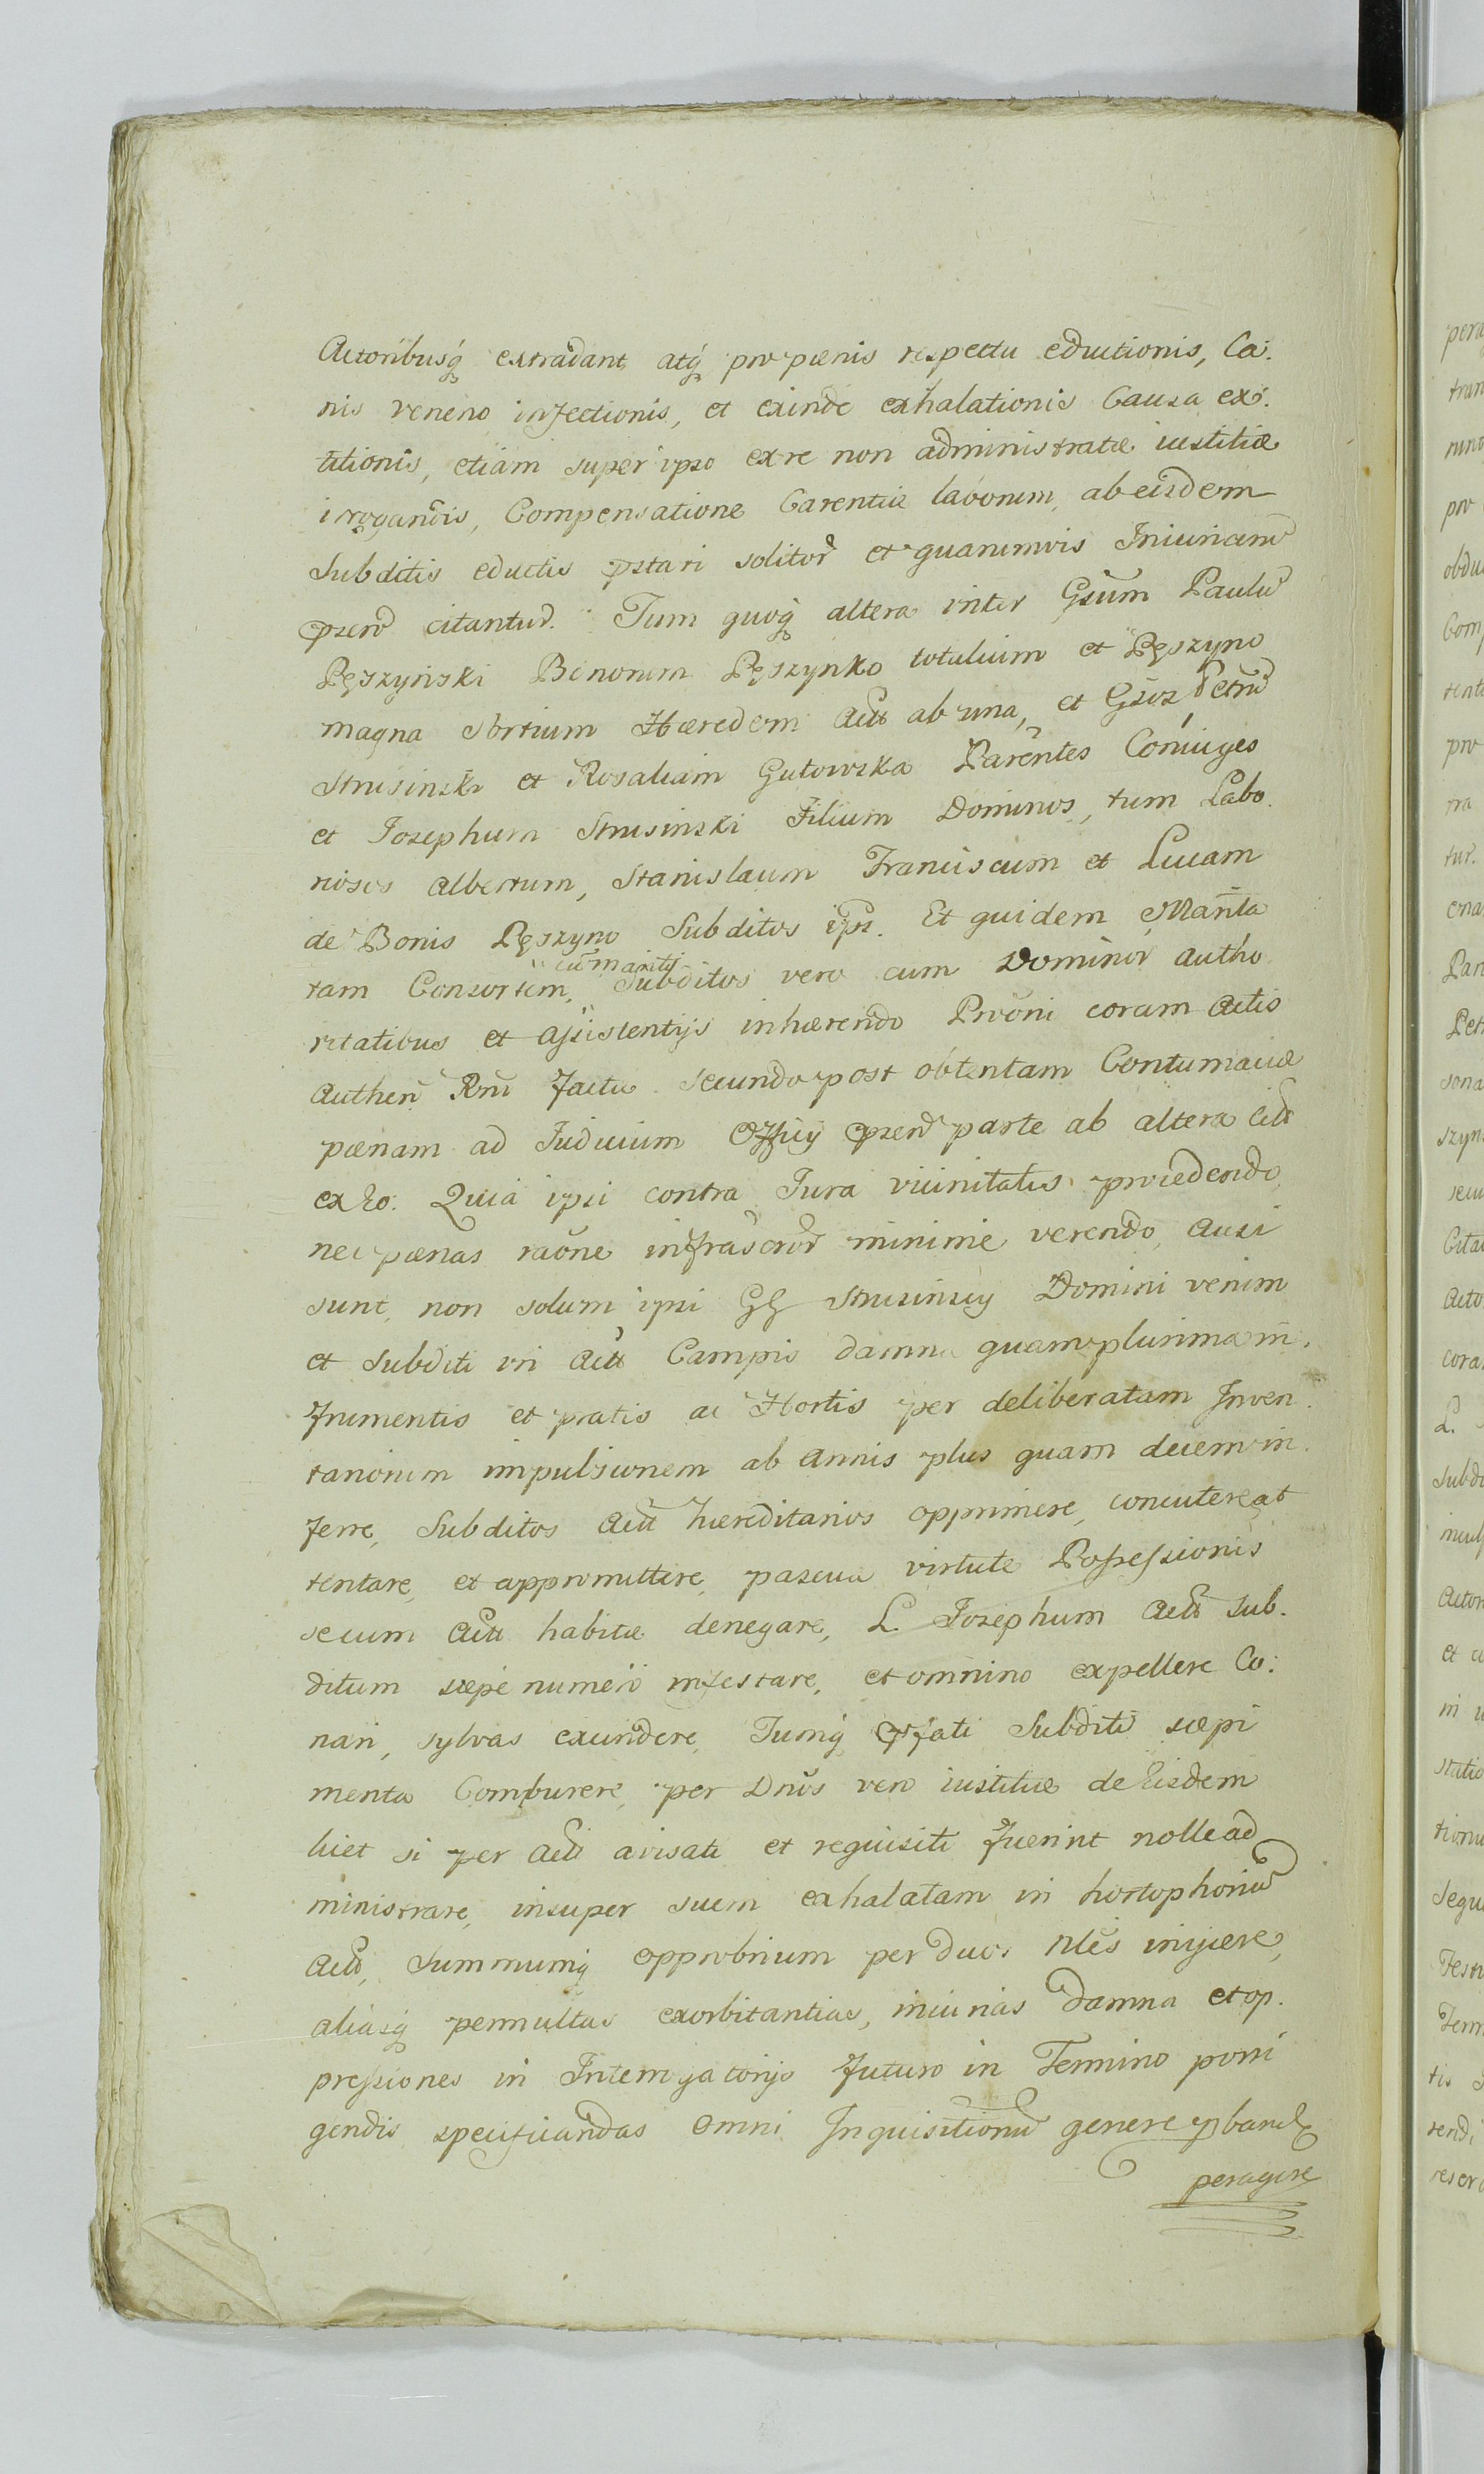 Actoribusq́ extradant atq́ pro pænis respectu eductionis, Ca:
nis veneno infectionis, et exinde exhalationis Causa exi.
titionis, etiam super ipso ex re non administratæ iustitiæ
irrogandis, Compensatione Carentiæ laborum, ab eisdem
Subditis eductis pstari solitor et quarumvis Iniuriarum
citantur. Tum quoq́ altera inter Gsum Paulu
Pęszyński Bonorum Pęszynko totalium et Pęszyno
magna Sortium Hæredem Act ab una, et Gsos Petru
Strusinski et Rosaliam Gutowska Parentes Coniuges
et Iosephum Strusinski Filium Dominos, tum Labo.
riosos Albertum, Stanislaum Franciscum et Lucam
de Bonis Pęszyno Subditos ips. Et quidem Marita
cu maritj
tam Consortem, Subditos vero cum Dominor autho
ritatibus et assistentijs inhærendo Prooni coram Actis
Authen Rni factæ secundo post obtentam Contumaciæ
pænam ad Iudicium Officij parte ab altera Citt
ex eo. Quia ipsi contra Iura vicinitatis procedendo,
nec pænas raone infrascror minime verendo, ausi
sunt, non solum ipsi GG Strusinscy Domini verum
et Subditi in Act Campis damna quam plurima in.
frumentis et pratis ac Hortis per deliberatam Inven.
tariorum impulsionem ab annis plus quam decem in.
ferre, Subditos Act hæreditarios opprimere, concutere, at
tentare, et appromittere, pascua virtute Possessionis
secum Act habitæ denegare, L. Iosephum Act Sub.
ditum sæpe numero infestare, et omnino expellere Co:
nari, sylvas excindere, Tumq́ pfati Subditi sæpi
menta Comburere, per Dnos vero iustitiæ de Eisdem
licet si per Act avisati et requisiti fuerint nolle ad
ministrare, insuper suem exhalatam in hortophoriu
Act, Summumq́ opprobrium per duos Nles inijcere,
aliasq́ permultas exorbitantias, iniurias damna et op.
pressiones in Interrogatorijs futuro in Termino porri
gendis specificandas omni Inquisitionu genere pband
peragere